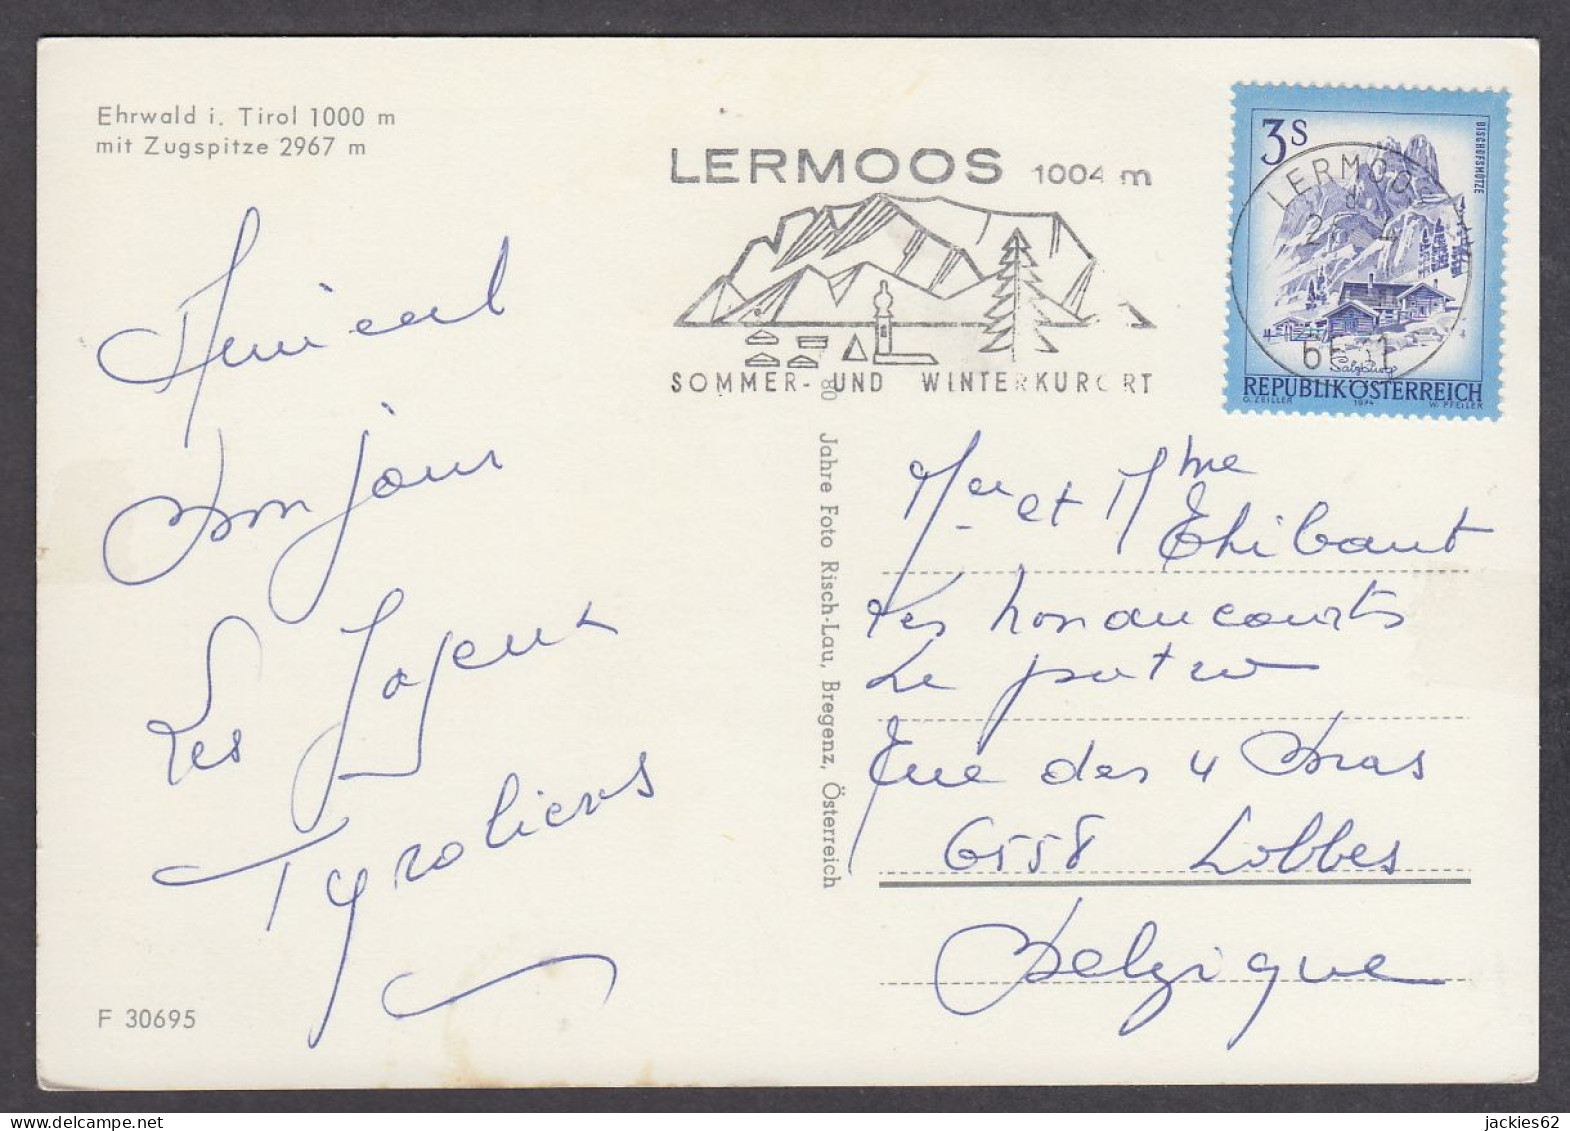 Ehrwald i. Tirol 1000 m
mit Zugspitze 2967 m
LERMOOS 1004 m
SOMMER- UND WINTERKURORT
3S
BISCHOFSMÜTZE
LERMOOS
Salzburg
REPUBLIK ÖSTERREICH
G. ZEILLER 1974 W. PFEILER
Amical
Bonjour
Les Joyeux
Tyroliens
80 Jahre Foto Risch-Lau, Bregenz, Österreich
et Mme
Thibaut
Les
Le
Rue des 4 Bras
6558 Lobbes
Belgique
F 30695
jackies62